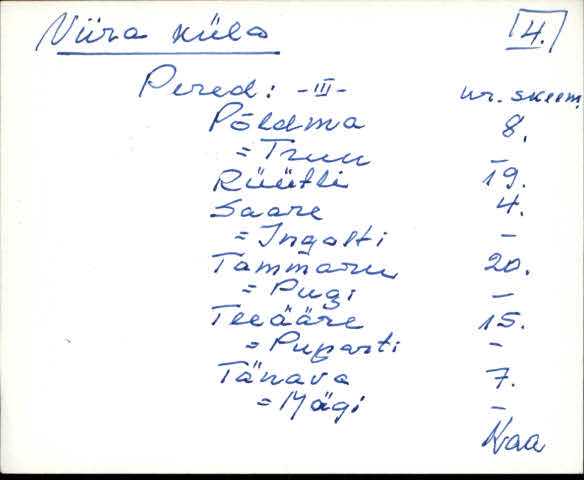 Viira küla 4.
Pered: -III- nr. skeem.
Põldma 8.
= Truu –
Rüütli 19.
Saare 4.
= Ingasti –
Tammaru 20.
= Pugi –
Teeääre 15.
= Puparti –
Tänava 7.
= Mägi –
Kaa